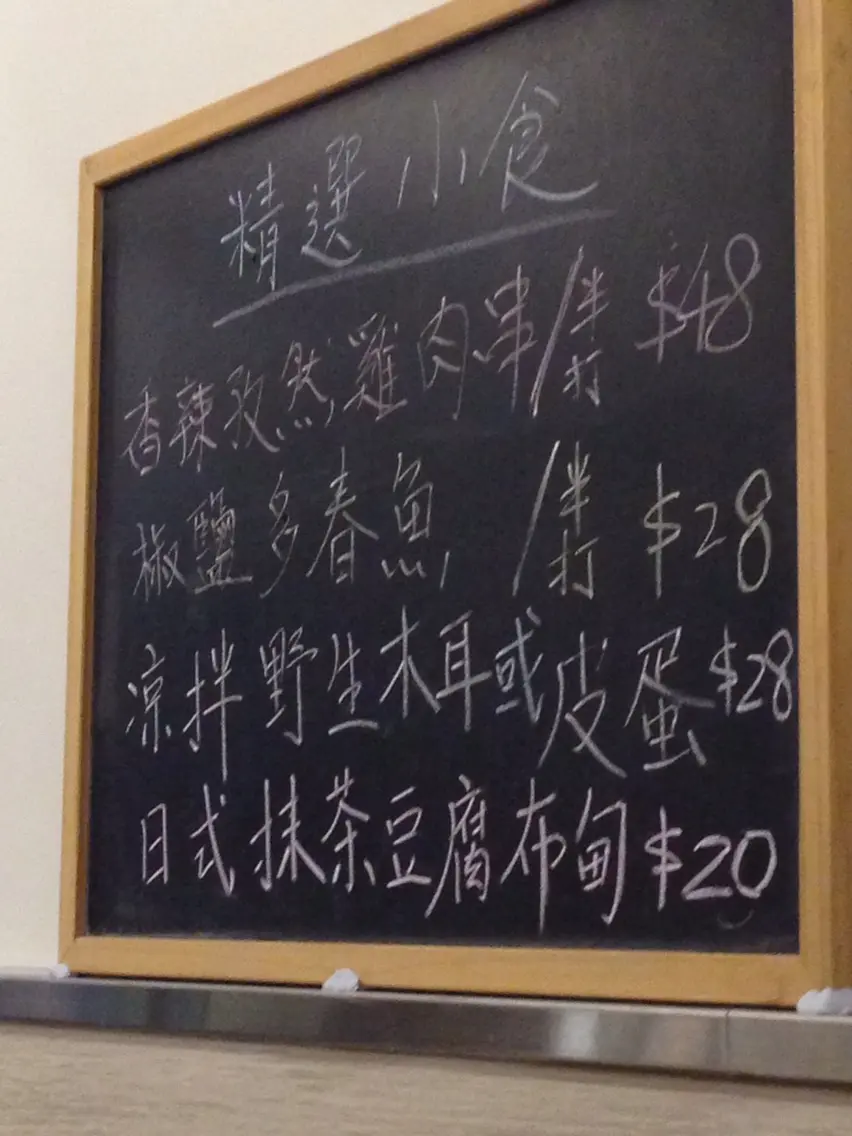 精選小食
香辣孜然雞肉串/半打 $48
椒鹽多春魚 /半打 $28
凉拌野生木耳或皮蛋 $28
日式抹茶豆腐布甸 $20